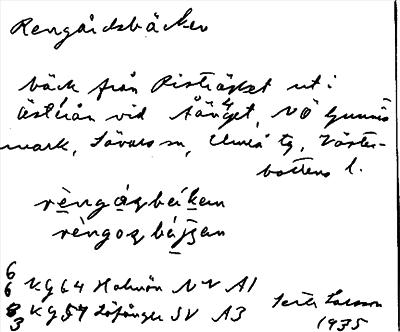 Rengårdsbäcken
bäck från Risträsket ut i
Österån vid Åänget, NÖ Gunnis
mark, Lövars sn, Umeå tg, Väster-
bottens l.
rèngáɋbäḱen
rèngoɋ
6
6 KG64 Holmön NV A1
8 KG57 Lövånger SV A3
3
Larsson
1935